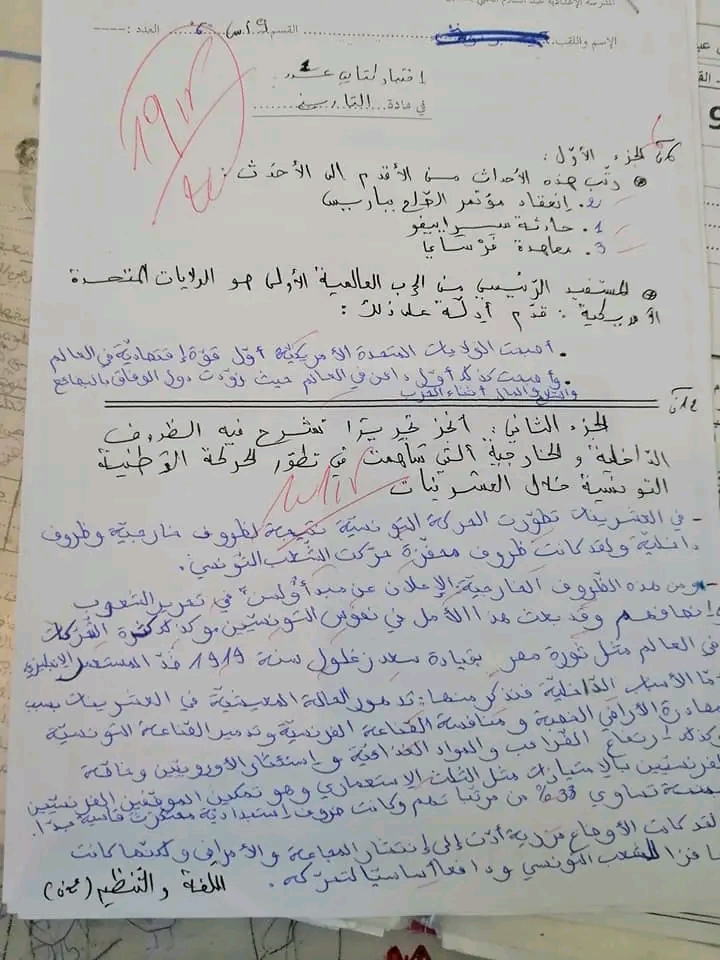 المدرسة الإعدادية عبد السلام
الاسم واللقب: القسم: 9 أس 6 العدد:
اختبار كتابي عدد 1
في مادة التاريخ
19
20
الجزء الأوّل: 6ن
رتّب هذه الأحداث من الأقدم إلى الأحدث:
2. إنعقاد مؤتمر الصّلح بباريس
1. حادثة سيراييفو
3. معاهدة فرساي
المستفيد الرّئيسي من الحرب العالمية الأولى هو الولايات المتحدة
الأمريكية: قدّم أدلّة على ذلك:
. أصبحت الولايات المتحدة الأمريكيّة أوّل قوّة إقتصاديّة في العالم
. وأصبحت كذلك أوّل دائن في العالم حيث زوّدت دول الوفاق بالبضائع
والسّلاح والمال أثناء الحرب
12ن
الجزء الثاني: أنجز تحريرا تشرح فيه الظروف
الدّاخلية والخارجية التي ساهمت في تطوّر الحركة الوطنية
التونسية خلال العشرينات
- في العشرينات تطوّرت الحركة التونسيّة نتيجة لظروف خارجيّة وظروف
داخليّة ولقد كانت ظروف محفّزة حرّكت الشّعب التونسي.
- ومن هذه الظّروف الخارجيّة: الإعلان عن مبدأ ولسن في تحرير الشعوب
وإنصافهم وقد بعث هذا الأمل في نفوس التونسيّين وكذلك كثرة الحركات
في العالم مثل ثورة مصر بقيادة سعد زغلول سنة 1919 ضدّ المستعمر الإنجليزي
أمّا الأسباب الدّاخليّة فنذكر منها: تدهور الحالة المعيشيّة في العشرينات بسبب
مصادرة الأراضي الخصبة و منافسة الصّناعة الفرنسيّة وتدمير الصّناعة التونسيّة
وكذلك إرتفاع الضّرائب والمواد الغذائيّة و إستئثار الأوروبيّين وخاصّة
الفرنسيّين بالإمتيازات مثل الثلث الإستعماري وهو تمكين الموظّفين الفرنسيّين
بمنحة تساوي 33% من مرتّباتهم وكانت ظروف إستبداديّة قاسية جدّا.
لقد كانت الأوضاع مزرية أدّت إلى إنتشار المجاعة والأمراض ولكنّها كانت
حافزا للشعب التونسي ودافعا أساسيّا لتحرّكه.
اللغة و التنظيم (2ن)